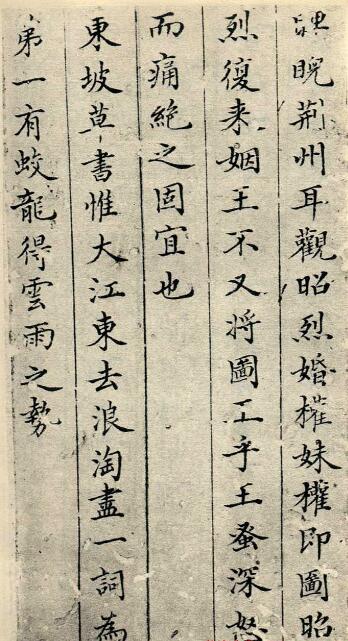 睥睨荊州耳觀昭烈婚權妹權即圖昭
烈復来姻王不又将圖王乎王蚤深怒
而痛絶之固宜也
東坡草書惟大江東去浪淘盡一詞為
第一有蛟龍得雲雨之勢